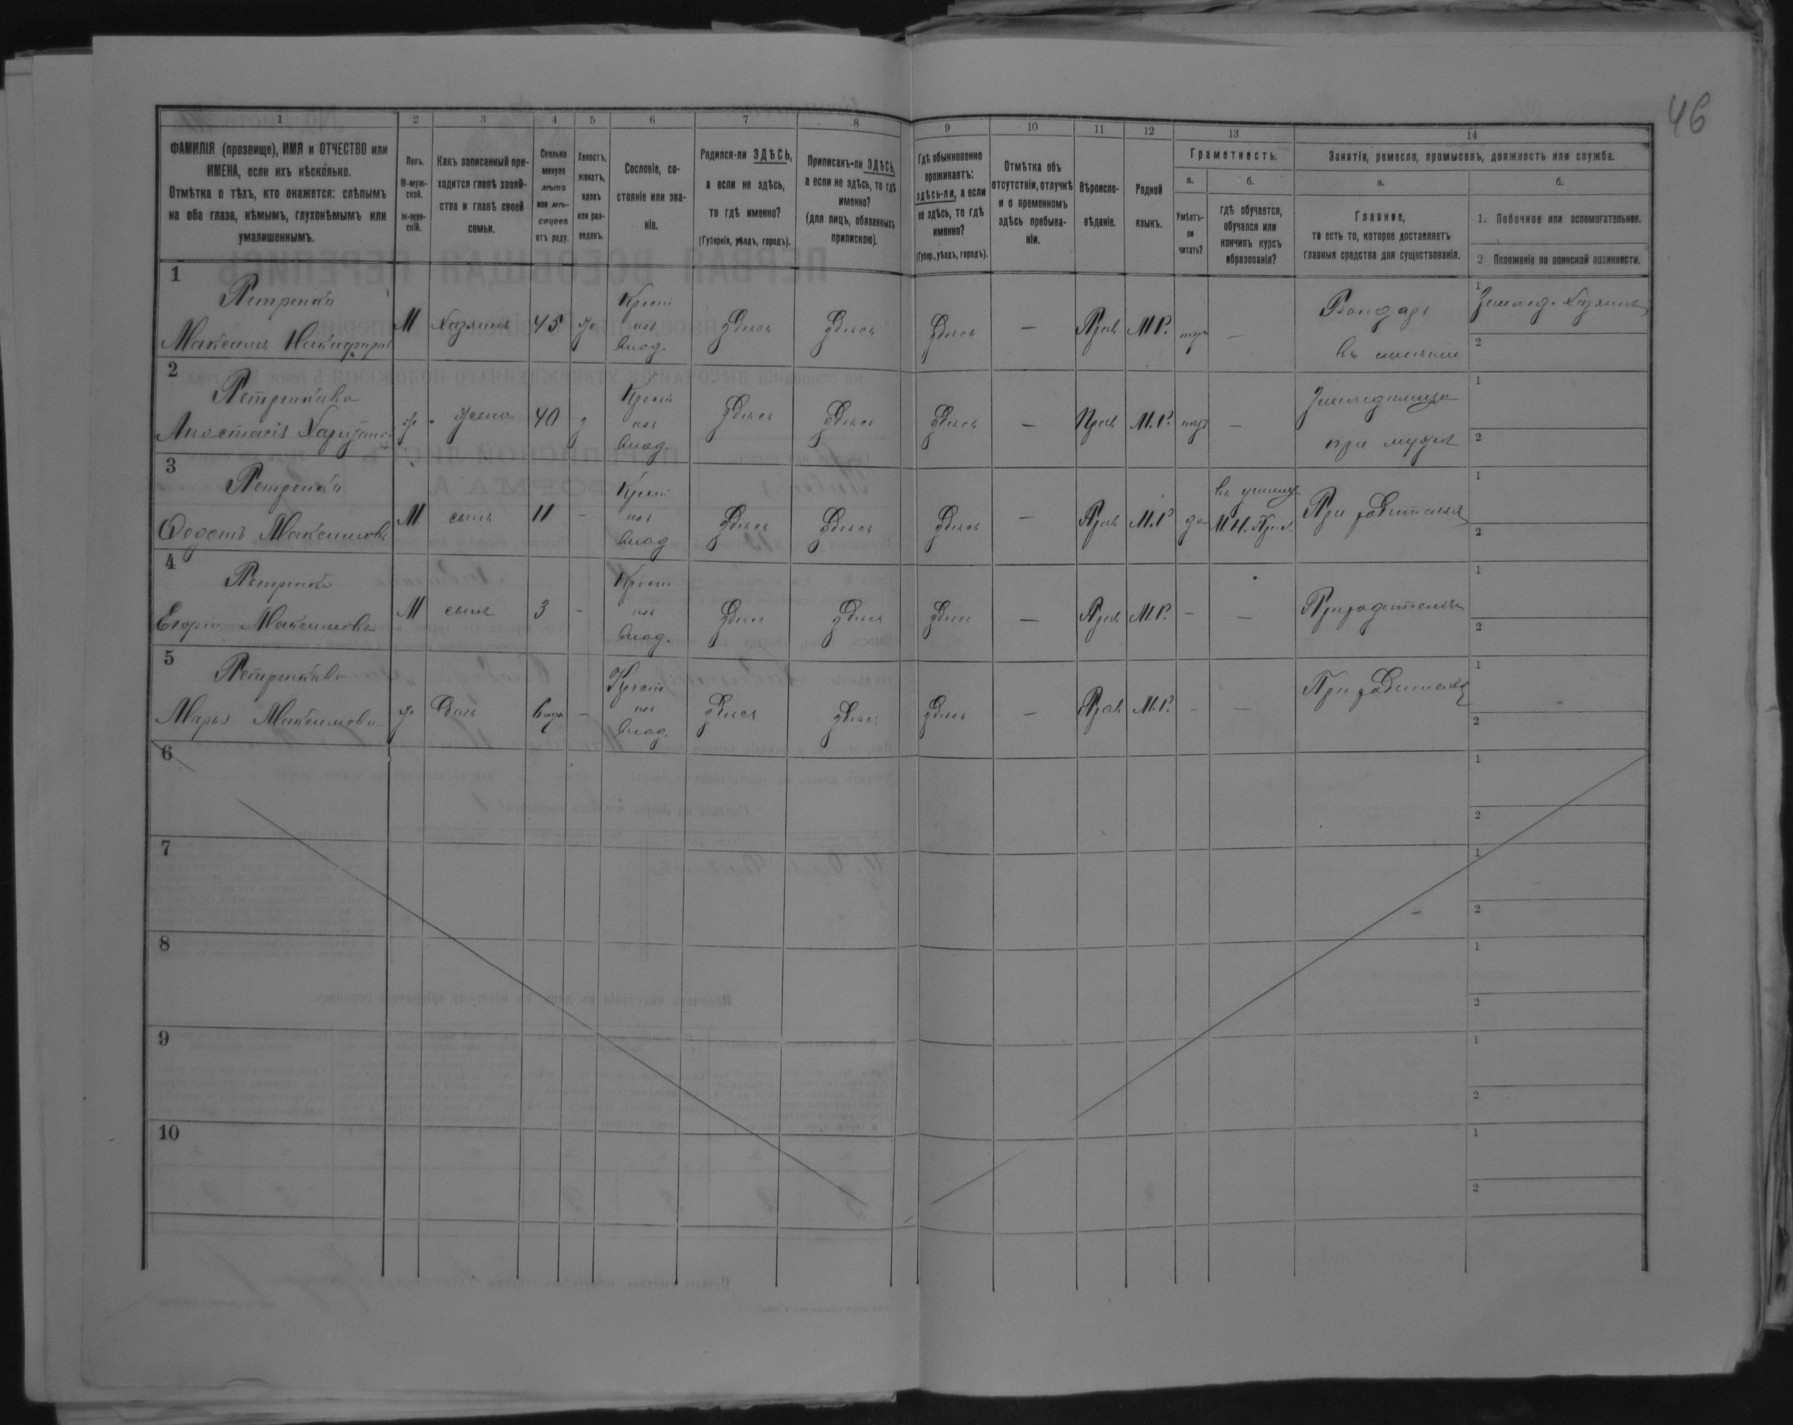 46
1 2 3 4 5 6 7 8 9 10 11 12 13 14
ФАМИЛІЯ (прозвище), ИМЯ и ОТЧЕСТВО или
ИМЕНА, если ихъ нѣсколько.
Отмѣтка о тѣхъ, кто окажется: слѣпымъ
на оба глаза, нѣмымъ, глухонѣмымъ или
умалишеннымъ.
Полъ.
М-муж-
ской.
ж-жен-
скій.
Какъ записанный при-
ходится главѣ хозяй-
ства и главѣ своей
семьи.
Сколько
минуло
лѣтъ
или мѣ-
сяцевъ
отъ роду.
Холостъ,
женатъ,
вдовъ
или раз-
веденъ.
Сословіе, со-
стояніе или зва-
ніе.
Родился-ли ЗДѢСЬ,
а если не здѣсь,
то гдѣ именно?
(Губернія, уѣздъ, городъ).
Приписанъ-ли ЗДѢСЬ,
а если не здѣсь, то гдѣ
именно?
(для лицъ, обязанныхъ
припискою).
Гдѣ обыкновенно
проживаетъ:
здѣсь-ли, а если
не здѣсь, то гдѣ
именно?
(Губер., уѣздъ, городъ).
Отмѣтка объ
отсутствіи, отлучкѣ
и о временномъ
здѣсь пребыва-
ніи.
Вѣроиспо-
вѣданіе.
Родной
языкъ.
Грамотность.
а.
Умѣетъ-
ли
читать?
б.
гдѣ обучается,
обучался или
кончилъ курсъ
образованія?
Занятіе, ремесло, промыселъ, должность или служба.
а.
Главное,
то есть то, которое доставляетъ
главныя средства для существованія.
б.
1. Побочное или вспомогательное.
2 Положеніе по воинской повинности.
1
Петренко
Максимъ Никифоровъ
М Хозяинъ 45 ж
Крест
изъ
влад.
Здѣсь Здѣсь Здѣсь — Прав М.Р. —
Бондарь
въ имѣніи
1 Землед. Хозяинъ
2
2
Петренкова
Анастасія
ж жена 40 з
Крест
изъ
влад.
Здѣсь Здѣсь Здѣсь — Прав М.Р. —
при мужѣ
1
2
3
Петренко
Ѳедотъ Максимовъ
М сынъ 11 -
Крест
изъ
влад
Здѣсь Здѣсь Здѣсь — Прав М.Р да
При родителяхъ
1
2
4
Петренко
Егоръ Максимовъ
М сынъ 3 -
Крест
изъ
влад.
Здѣсь Здѣсь Здѣсь — Прав М.Р. - —
При родителяхъ
1
2
5
Петренкова
Марья Максимова
ж Дочь -
Крест
изъ
влад.
Здѣсь Здѣсь Здѣсь — Прав М.Р. - —
При родителяхъ
1
2
6
1
2
7
1
2
8
1
2
9
1
2
10
1
2